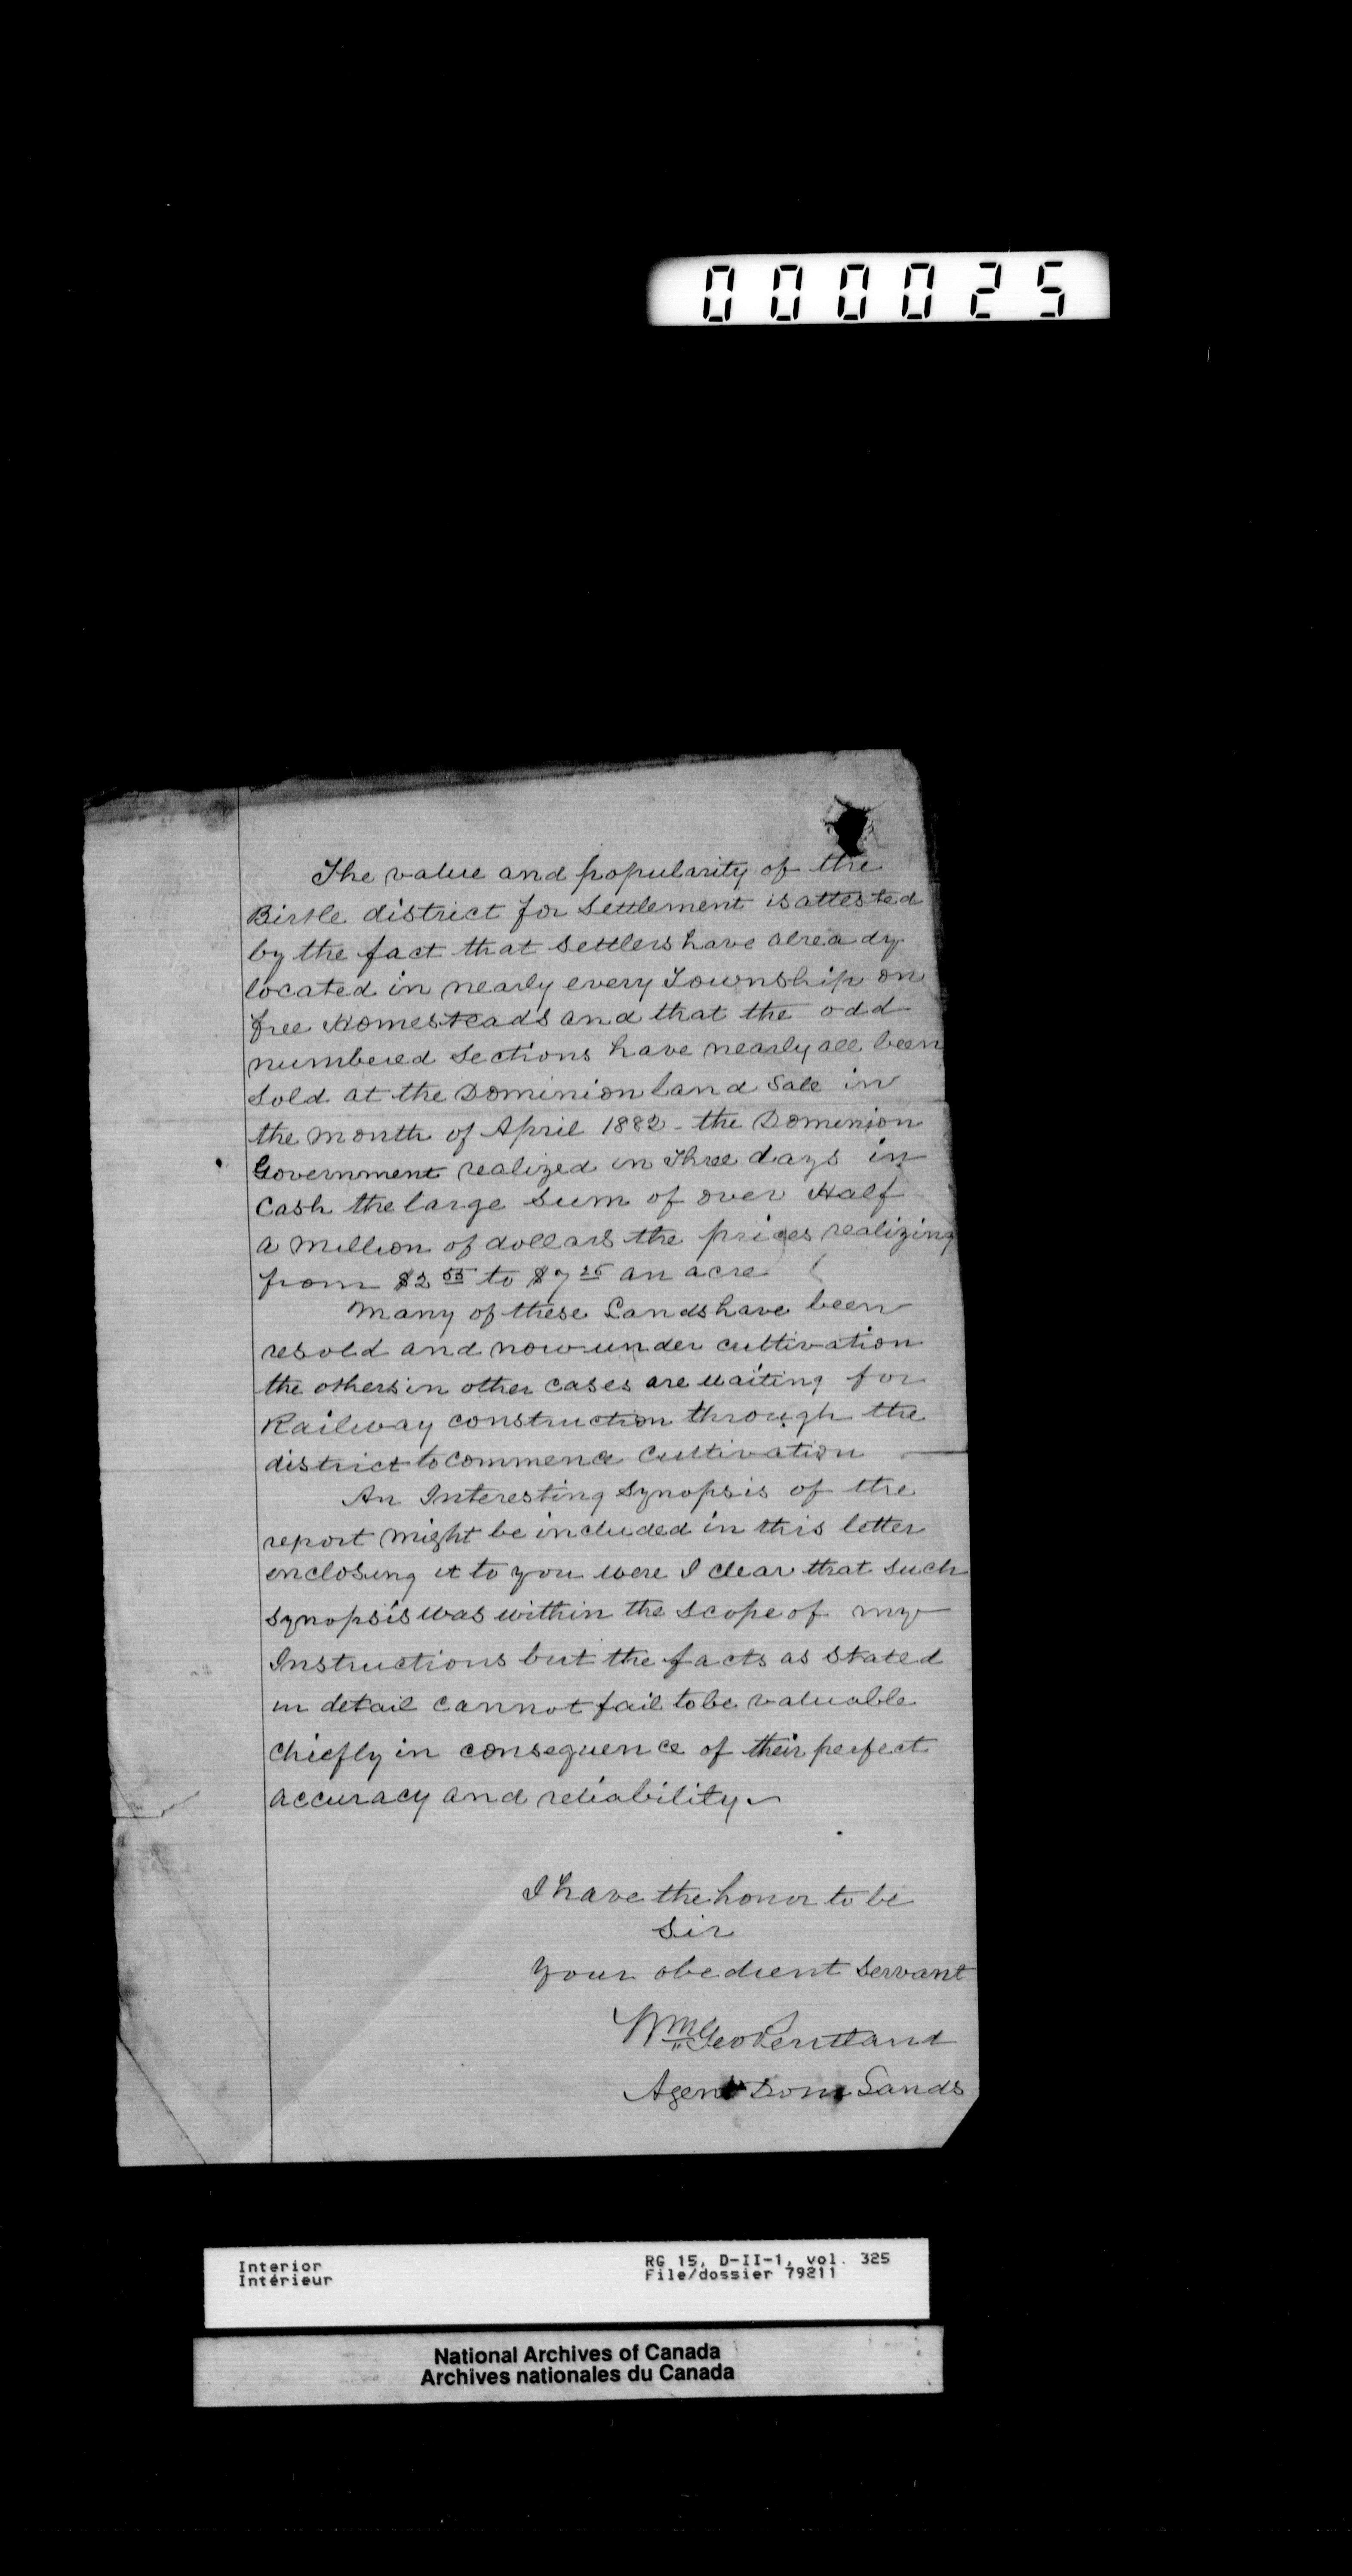 000025
The value and popularity of the
Birtle district for settlement is attested
by the fact that settlers have already
located in nearly every Township on
free Homesteads and that the odd
numbered Sections have nearly all been
sold at the Dominion Land Sale in
the month of April 1882 - the Dominion
Government realized in Three days in
Cash the large sum of over Half
a Million of dollars the prices realizing
from $2 55 to $7 25 an acre
Many of these Lands have been
resold and now under cultivation
the others in other cases are waiting for
Railway construction through the
district to commence Cultivation
An Interesting Synopsis of the
report might be included in this letter
enclosing it to you were I clear that such
synopsis was within the scope of my
Instructions but the facts as stated
in detail cannot fail to be valuable
chiefly in consequence of their perfect
accuracy and reliability
I have the honor to be
Sir
Your obedient Servant
Wm Geo Pentland
Agent Dom Lands
Interior RG 15, D-II-1, vol. 325
Intérieur File/dossier 79211
National Archives of Canada
Archives nationales du Canada